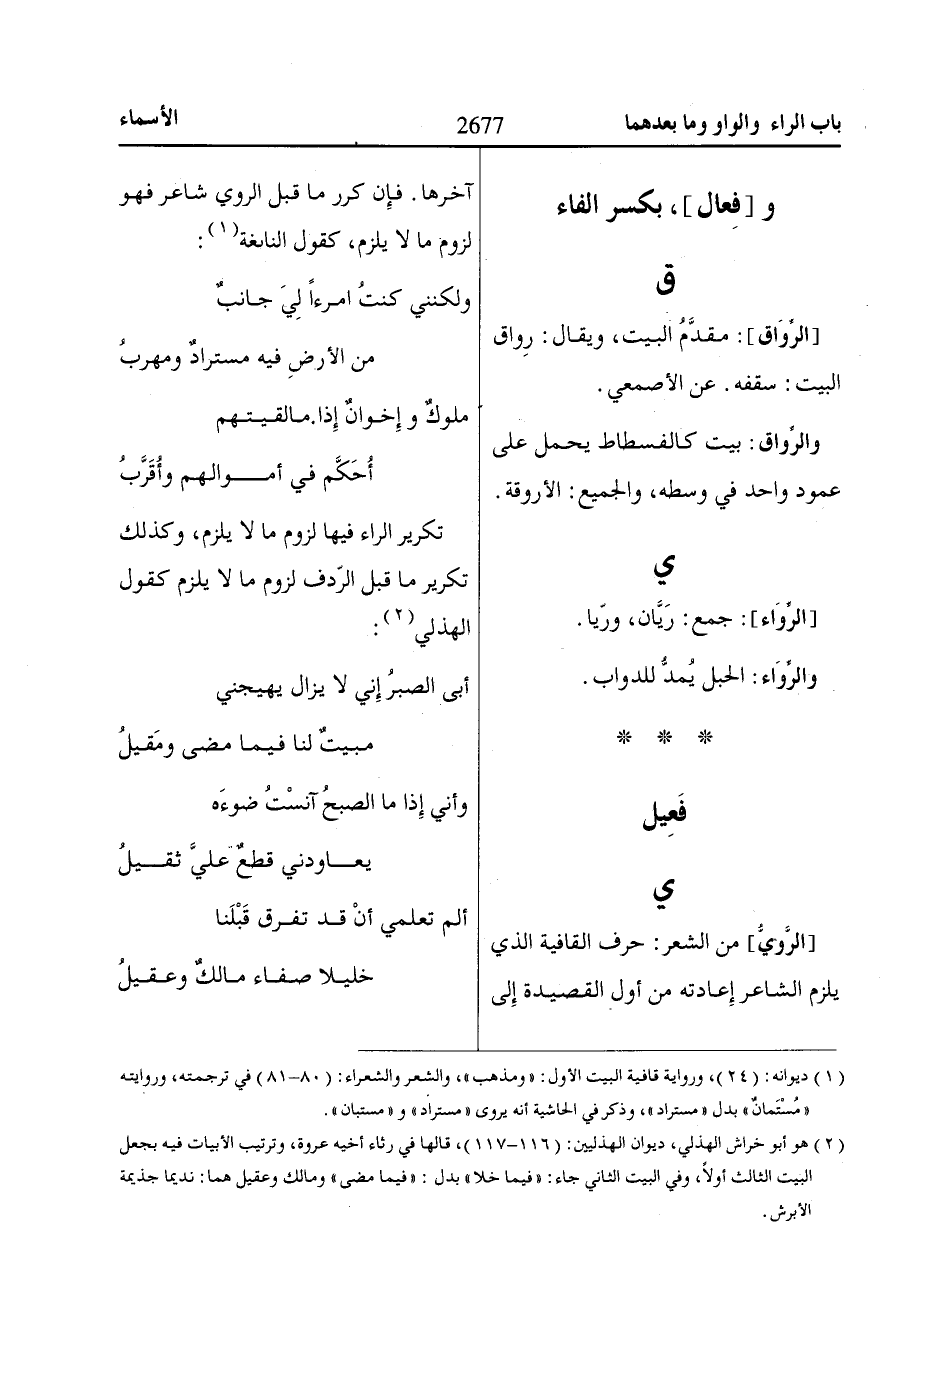 باب الراء والواو وما بعدهما
2677
الأسماء
و [فِعال]، بكسر الفاء
ق
[الرِّوَاق]: مقدَّمُ البيت، ويقال: رِواق
البيت: سقفه. عن الأصمعي.
والرِّواق: بيت كالفسطاط يحمل على
عمود واحد في وسطه، والجميع: الأروقة.
ي
[الرِّوَاء]: جمع: رَيَّان، وريّا.
والرِّوَاء: الحبل يُمدُّ للدواب.
* * *
فَعِيل
ي
[الرَّوِيُّ] من الشعر: حرف القافية الذي
يلزم الشاعر إعادته من أول القصيدة إلى
آخرها. فإن كرر ما قبل الروي شاعر فهو
لزوم ما لا يلزم، كقول النابغة(١):
ولكنني كنتُ امرءاً لِيَ جانبٌ
من الأرضِ فيه مسترادٌ ومهربُ
ملوكٌ و إخوانٌ إذا مالقيتهم
أُحَكَّم في أموالهم وأُقَرَّبُ
تكرير الراء فيها لزوم ما لا يلزم، وكذلك
تكرير ما قبل الرّدف لزوم ما لا يلزم كقول
الهذلي(٢):
أبى الصبرُ إني لا يزال يهيجني
مبيتٌ لنا فيما مضى ومَقيلُ
وأني إذا ما الصبحُ آنسْتُ ضوءَه
يعاودني قطعٌ عليَّ ثقيلُ
ألم تعلمي أنْ قد تفرق قَبْلَنا
خليلا صفاء مالكٌ وعقيلُ
(١) ديوانه: (٢٤)، ورواية قافية البيت الأول: «ومذهب»، والشعر والشعراء: (٨٠-٨١) في ترجمته، وروايته
«مُسْتَمانٌ» بدل «مستراد»، وذكر في الحاشية أنه يروى «مستراد» و «مستبان».
(٢) هو أبو خراش الهذلي، ديوان الهذليين: (١١٦-١١٧)، قالها في رثاء أخيه عروة، وترتيب الأبيات فيه بجعل
البيت الثالث أولاً، وفي البيت الثاني جاء: «فيما خلا» بدل: «فيما مضى» ومالك وعقيل هما: نديما جذيمة
الأبرش.